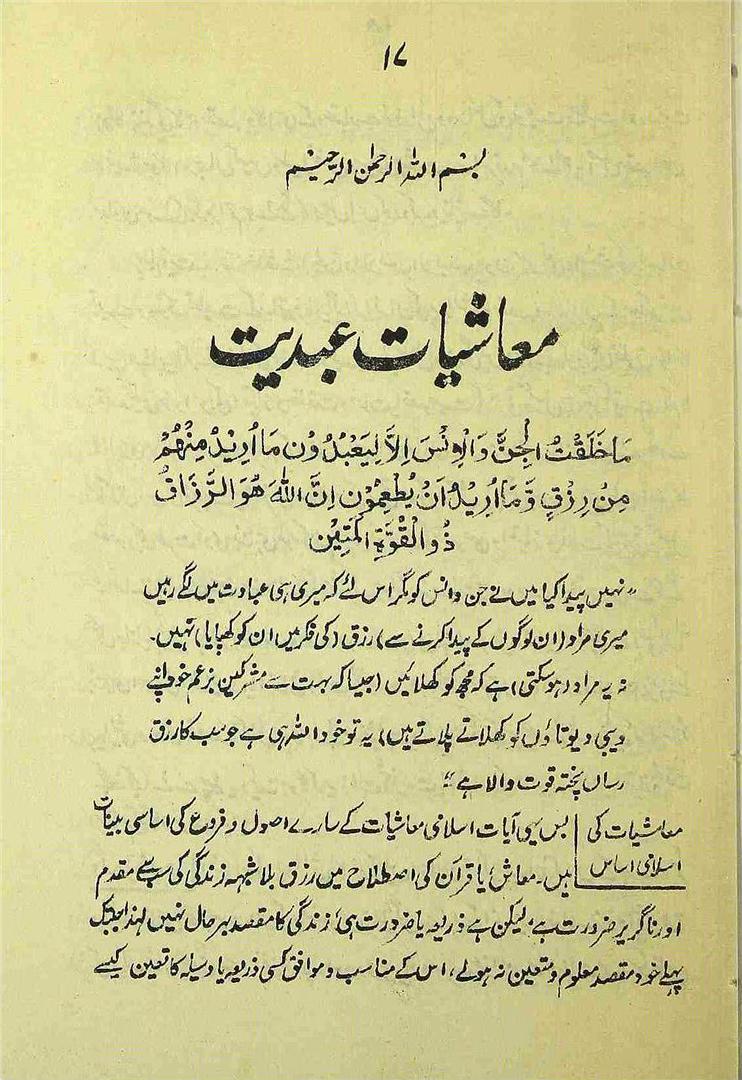 ۱۷
بِسْمِ اللهِ الرَّحْمٰنِ الرَّحِيْمِ
معاشیات عبدیت
مَا خَلَقْتُ الْجِنَّ وَالْاِنْسَ اِلَّا لِيَعْبُدُوْنِ مَا اُرِيْدُ مِنْهُمْ
مِنْ رِزْقٍ وَّمَا اُرِيْدُ اَنْ يُطْعِمُوْنِ اِنَّ اللهَ هُوَ الرَّزَّاقُ
ذُو الْقُوَّةِ الْمَتِيْن
”نہیں پیدا کیا میں نے جن و انس کو مگر اس لئے کہ میری ہی عبادت میں لگے رہیں
میری مراد (ان لوگوں کے پیدا کرنے سے) رزق (کی فکر میں ان کو کھپانا) نہیں۔
نہ یہ مراد (ہوسکتی) ہے کہ مجھ کو کھلائیں (جیسا کہ بہت سے مشرکین بزعم خود اپنے
دیبی دیوتاؤں کو کھلاتے پلاتے ہیں) یہ تو خود اللہ ہی ہے جو سب کا رزق
رساں پختہ قوت والا ہے“
معاشیات کی اسلامی اساس
بس یہی آیات اسلامی معاشیات کے سارے اصول و فروع کی اساسی بینات
ہیں۔ معاش یا قرآن کی اصطلاح میں رزق بلا شبہہ زندگی کی سب سے مقدم
اور ناگریر ضرورت ہے، لیکن ہے ذریعہ یا ضرورت ہی، زندگی کا مقصد بہر حال نہیں لہٰذا جبتک
پہلے خود مقصد معلوم و متعین نہ ہولے، اس کے مناسب و موافق کسی ذریعہ یا وسیلہ کا تعین کیسے